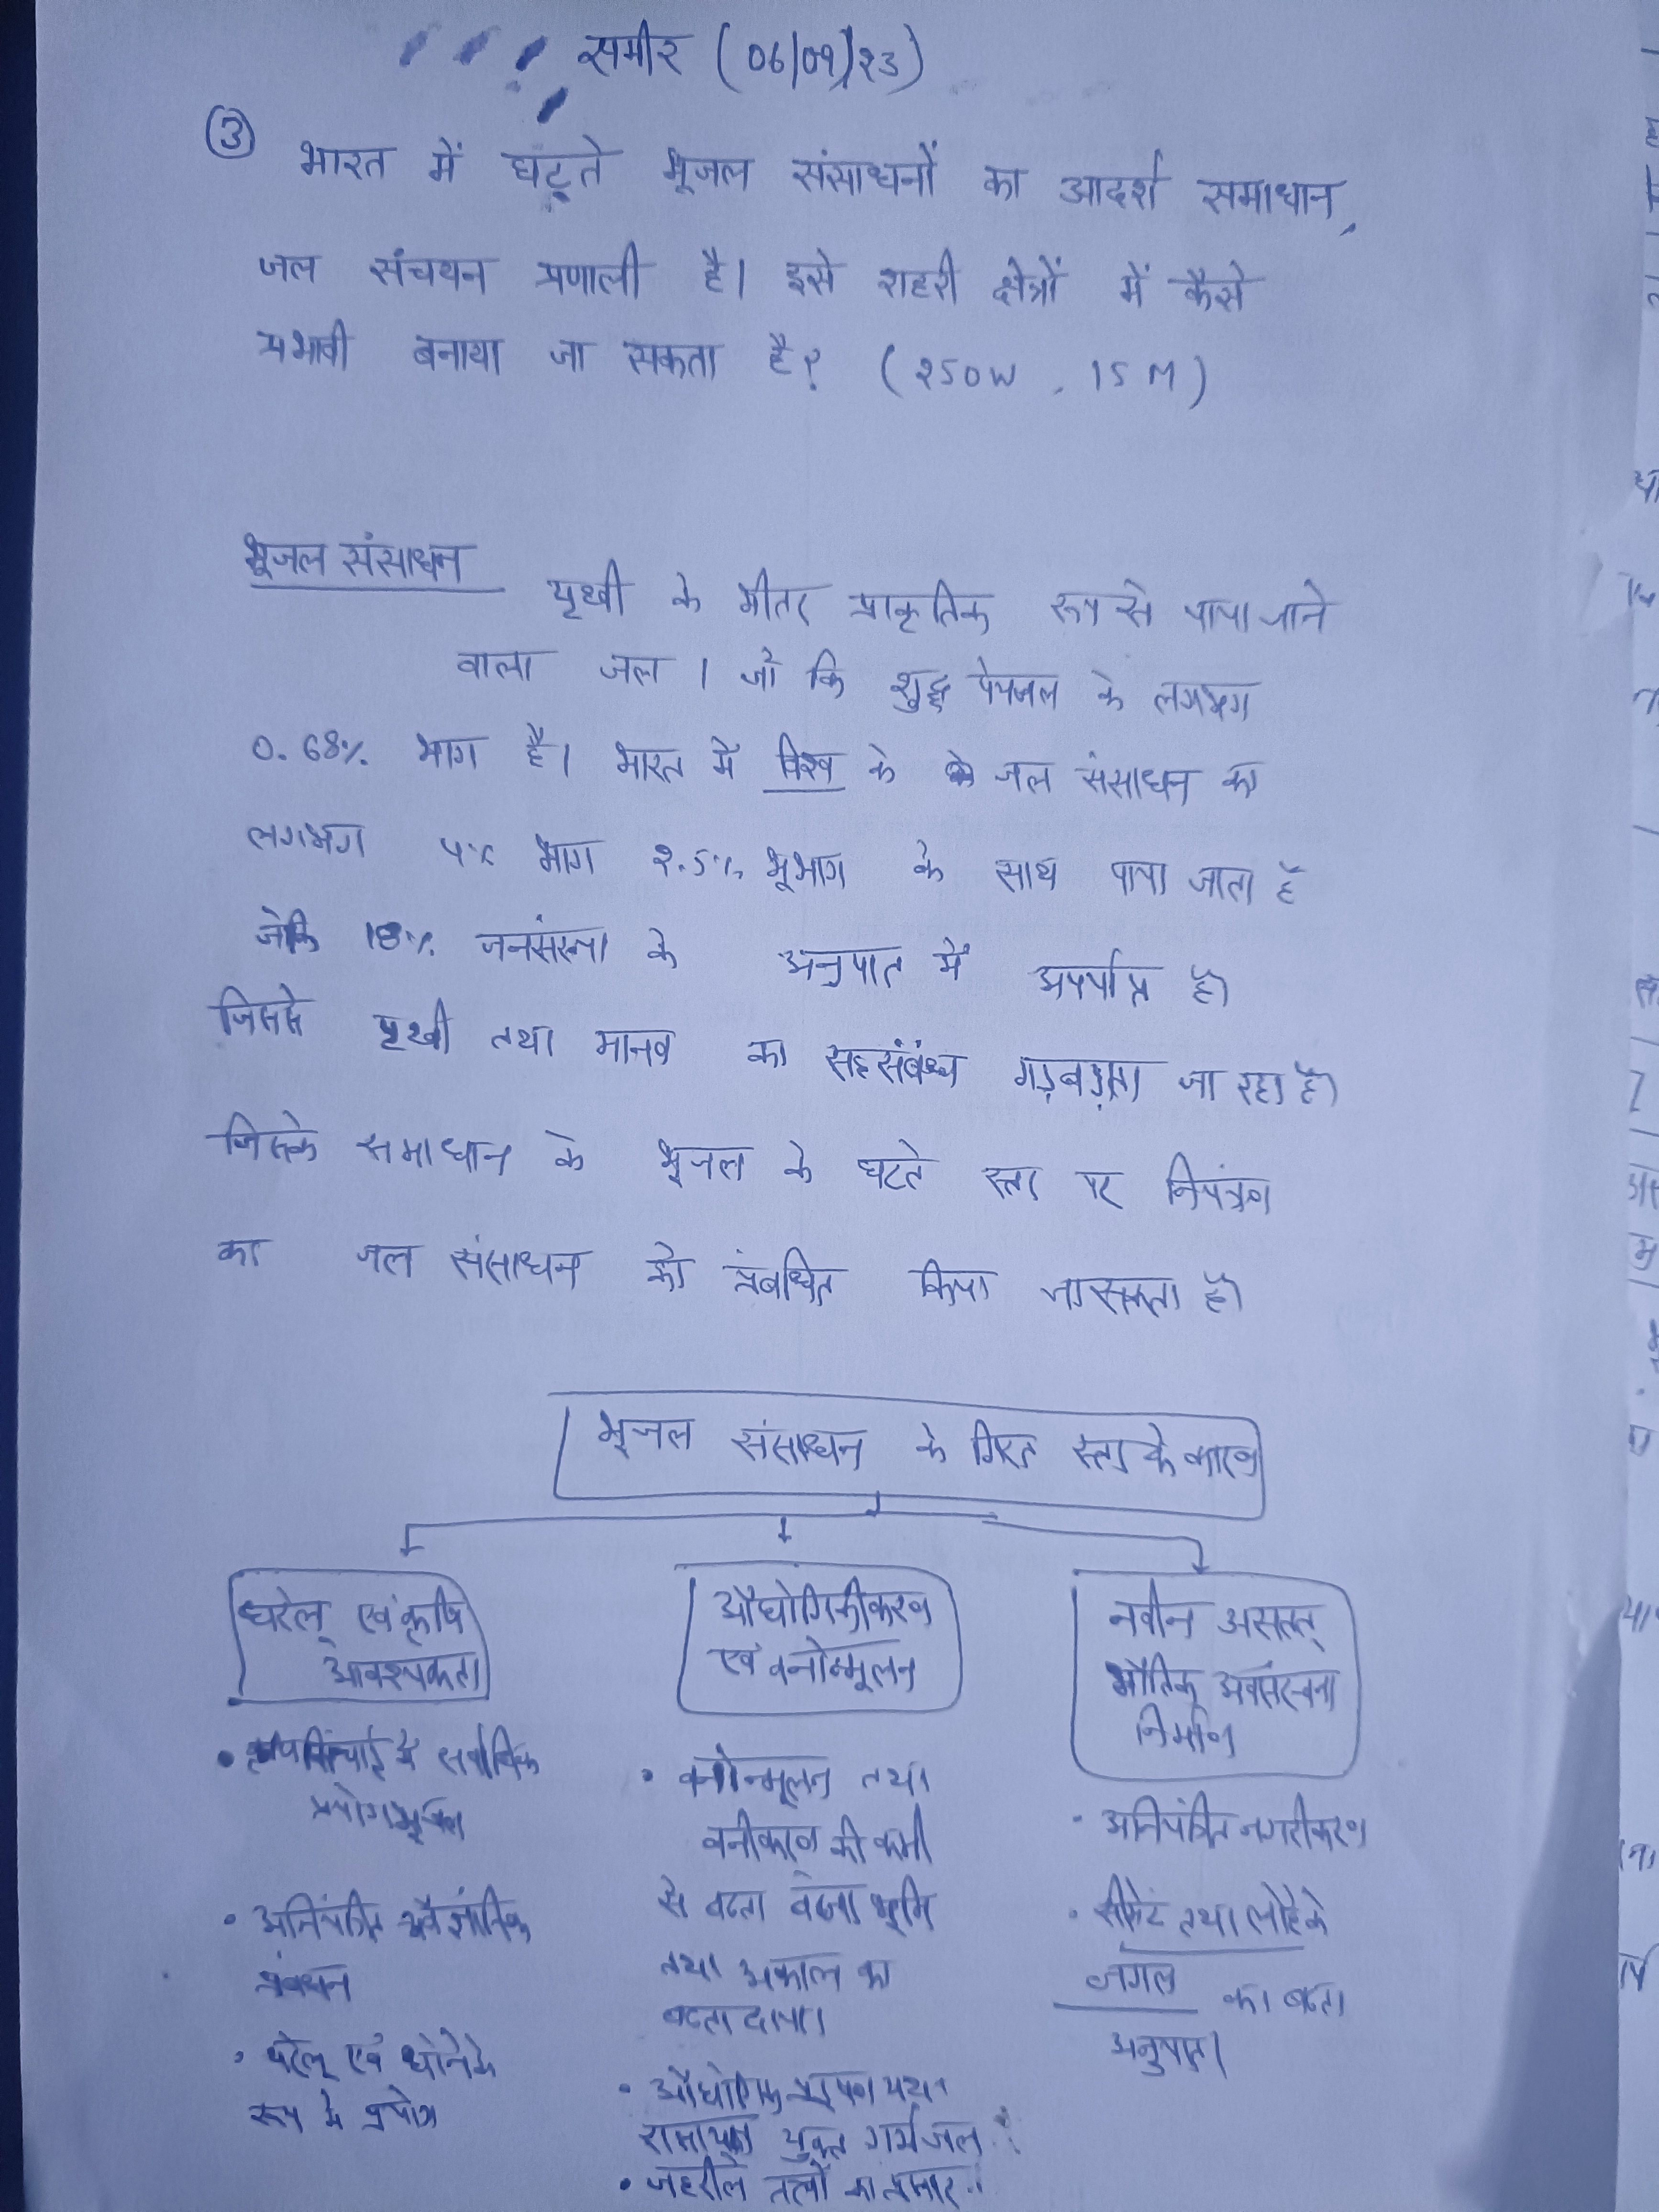 समीर (06/09/23)
③ भारत में घटते भूजल संसाधनों का आदर्श समाधान,
जल संचयन प्रणाली है। इसे शहरी क्षेत्रों में कैसे
प्रभावी बनाया जा सकता है? (250W, 15M)
भूजल संसाधन
पृथ्वी के भीतर प्राकृतिक रूप से पाया जाने
वाला जल । जो कि शुद्ध पेयजल के लगभग
0.68% भाग है। भारत में विश्व के जल संसाधन का
लगभग 4% भाग 2.5% भूभाग के साथ पाया जाता है
जोकि 18% जनसंख्या के अनुपात में अपर्याप्त है।
जिससे पृथ्वी तथा मानव का सहसंबंध गड़बड़ाता जा रहा है।
जिसके समाधान के भूजल के घटते स्तर पर नियंत्रण
का जल संसाधन को प्रबंधित किया जा सकता है।
भूजल संसाधन के गिरत स्तर के कारण
घरेलू एवं कृषि
आवश्यकता
• सिंचाई में सर्वाधिक
प्रयोग भूजल
• अनियंत्रित अवैज्ञानिक
प्रबंधन
• घरेलू एवं धोने के
रूप में प्रयोग
औद्योगिकीकरण
एवं वनोन्मूलन
• वनोन्मूलन तथा
वनीकरण की कमी
से बढता बंजर भूमि
तथा अकाल का
बढता दायरा।
• औद्योगिक प्रदूषण यथा
रासायन युक्त गर्म जल
• जहरीले तत्वों का प्रसार
नवीन असतत्
भौतिक अवसंरचना
निर्माण
• अनियंत्रित नगरीकरण
• सीमेंट तथा लोहे के
जंगल का बढता
अनुपात।